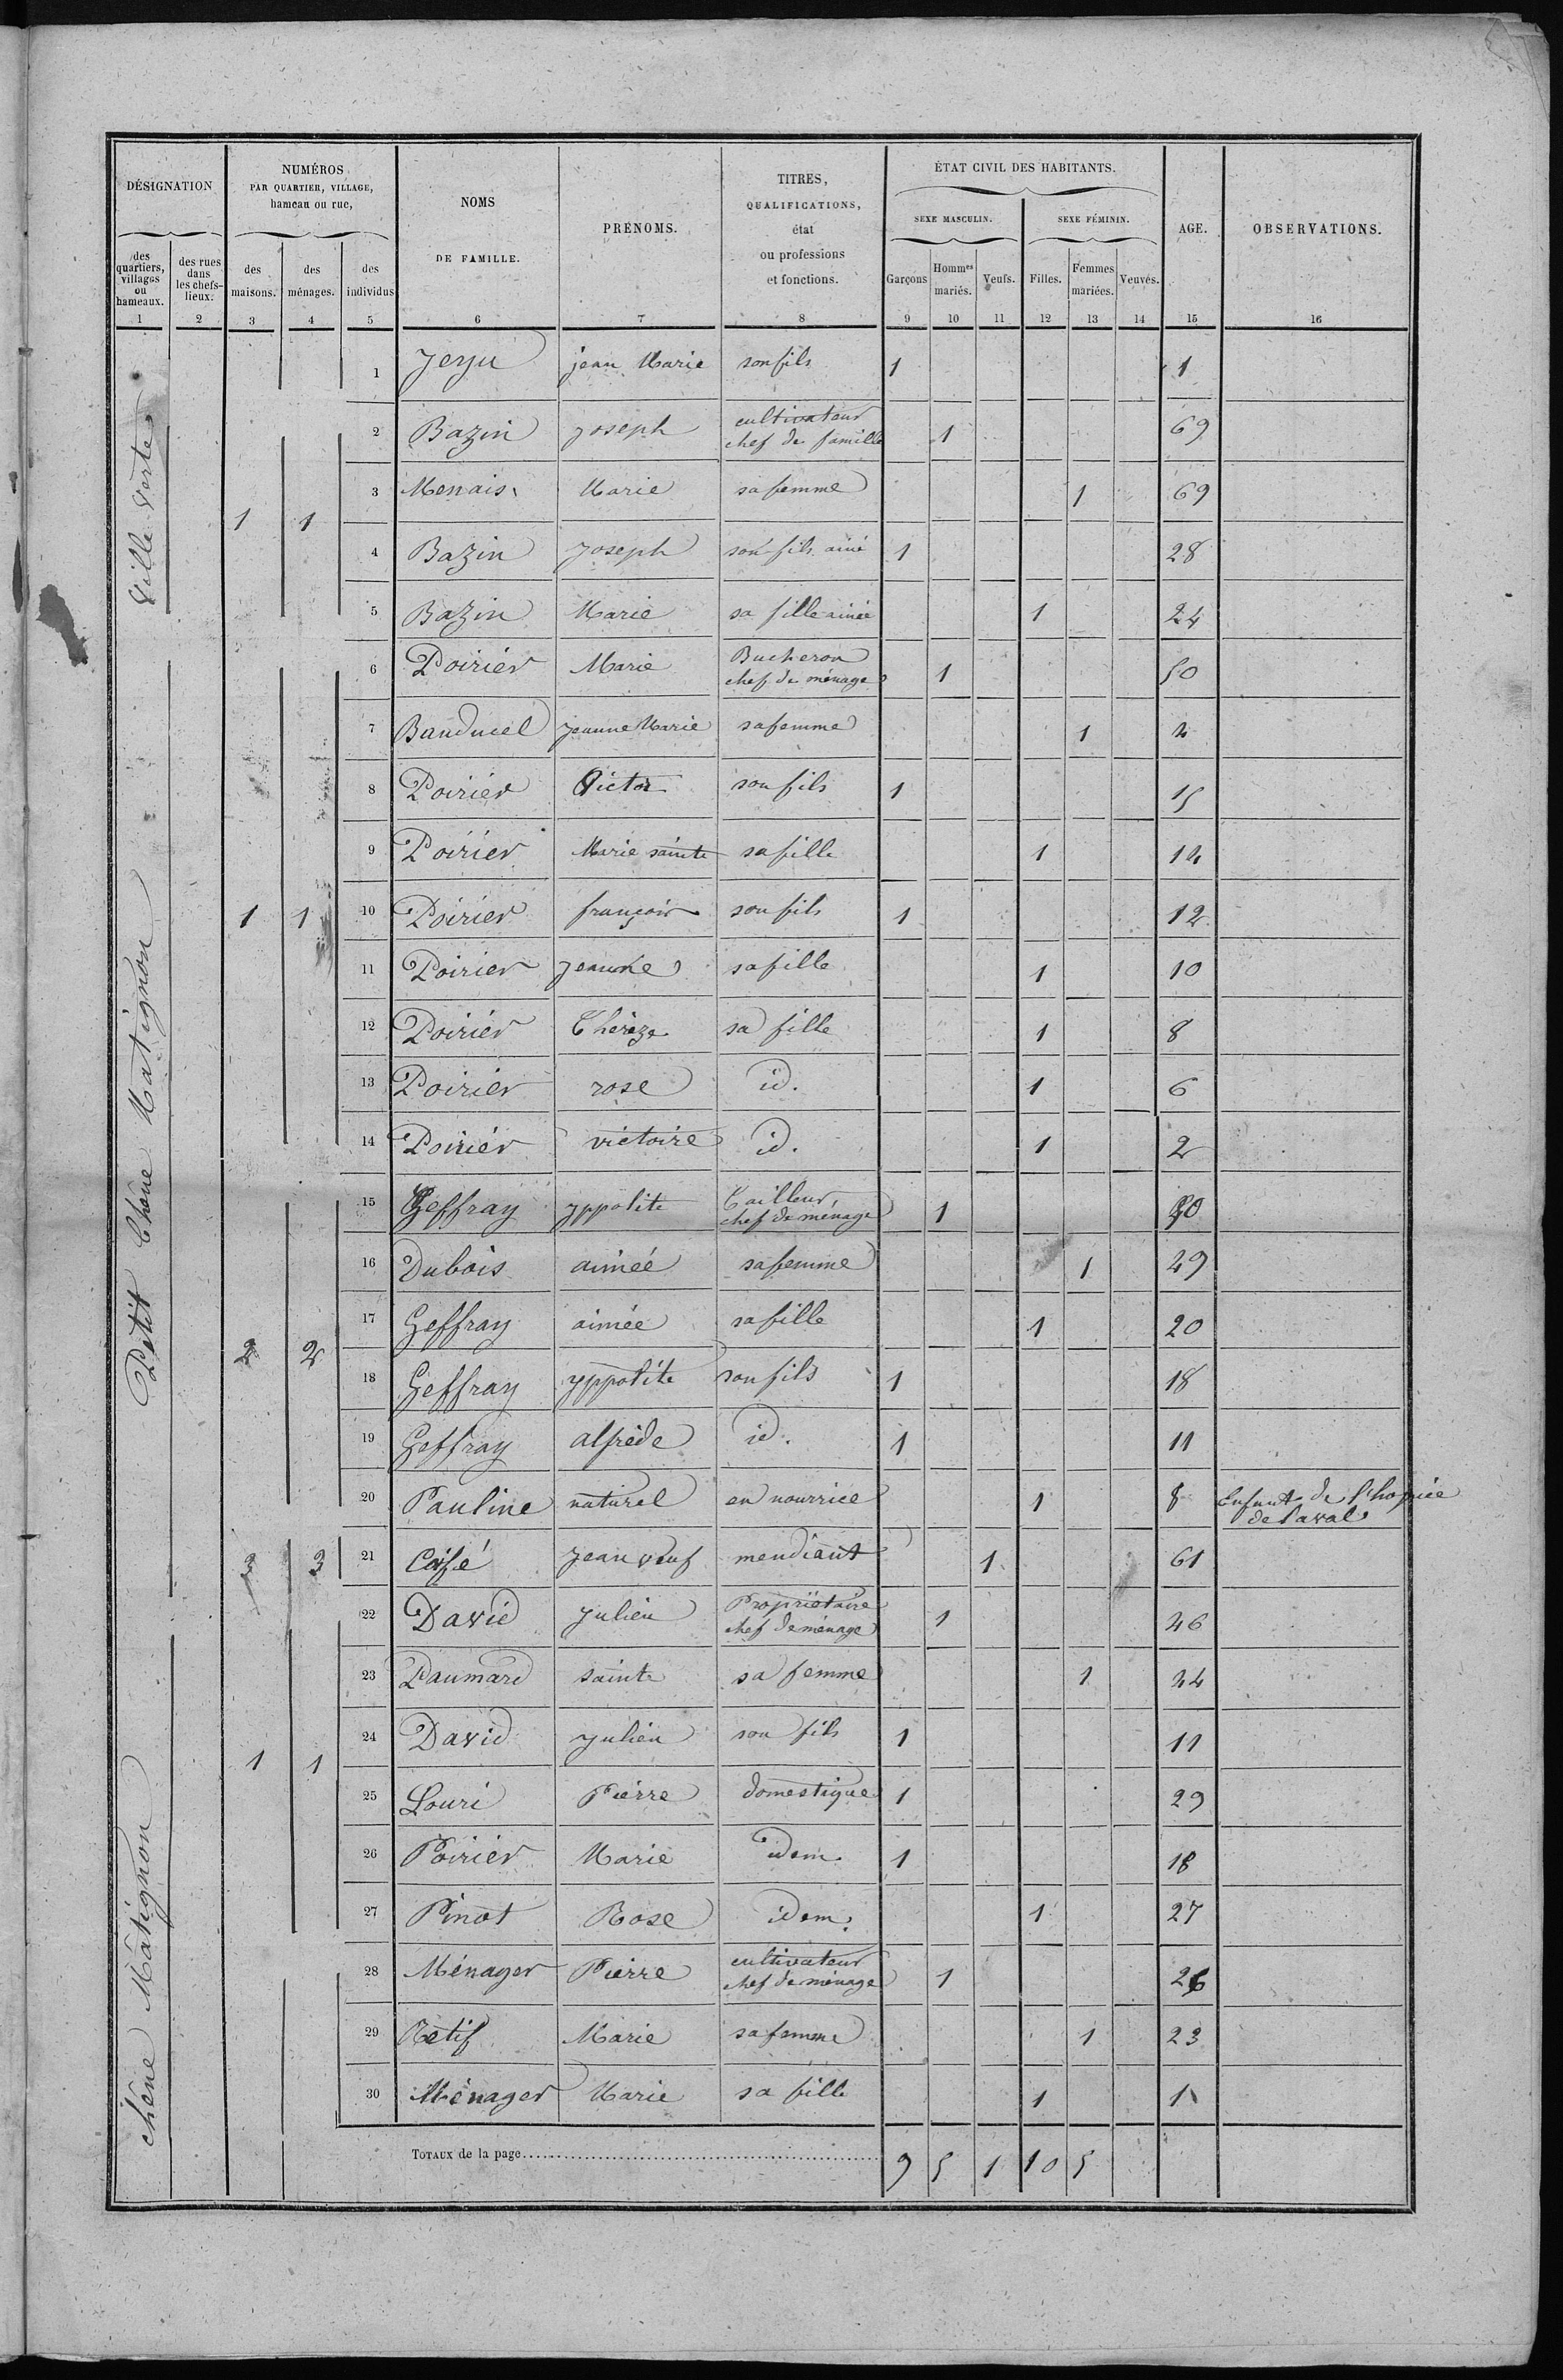 DÉSIGNATION
des quartiers, villages ou hameaux.
des rues dans les chefs-lieux.
NUMÉROS
PAR QUARTIER, VILLAGE,
hameau ou rue,
des maisons.
des ménages.
des individus
NOMS
DE FAMILLE.
PRÉNOMS.
TITRES,
QUALIFICATIONS,
état
ou professions
et fonctions.
ÉTAT CIVIL DES HABITANTS.
SEXE MASCULIN.
SEXE FÉMININ.
Garçons
Hommes mariés.
Veufs.
Filles.
Femmes mariées.
Veuves.
AGE.
OBSERVATIONS.
1 2 3 4 5 6 7 8 9 10 11 12 13 14 15 16
1 jean Marie son fils 1 1
Ville Verte
1 1
2 Bazin joseph cultivateur
chef de famille 1 69
3 Menais Marie sa femme 1 69
4 Bazin Joseph son fils ainé 1 28
5 Bazin Marie sa fille ainée 1 24
Petit Chêne Matignon
1 1
6 Poirier Marie Bucheron
chef de ménage 1 50
7 jeanne Marie sa femme 1
8 Poirier Victor son fils 1 15
9 Poirier Marie sainte sa fille 1 14
10 Poirier françois son fils 1 12
11 Poirier jeanne sa fille 1 10
12 Poirier Thérèze sa fille 1 8
13 Poirier rose id. 1 6
14 Poirier victoire id. 1 2
2 2
15 Geffray yppolite Tailleur
chef de ménage 1 50
16 Dubois aimée sa femme 1 49
17 Geffray aimée sa fille 1 20
18 Geffray yppolite son fils 1 18
19 Geffray alfrède id. 1 11
20 Pauline naturel en nourrice 1 8 Enfant de l'hospice
de Laval
3 3
21 Jean veuf mendiant 1 61
chêne Matignon
1 1
22 David Julien Propriétaire
chef de ménage 1 46
23 Paumard sainte sa femme 1 44
24 David Julien son fils 1 11
25 Louri Pierre domestique 1 29
26 Poirier Marie idem. 1 18
27 Pinot Rose idem. 1 27
28 Ménager Pierre cultivateur
chef de ménage 1 26
29 Retif Marie sa femme 1 23
30 Ménager Marie sa fille 1 1
TOTAUX de la page 9 5 1 10 5